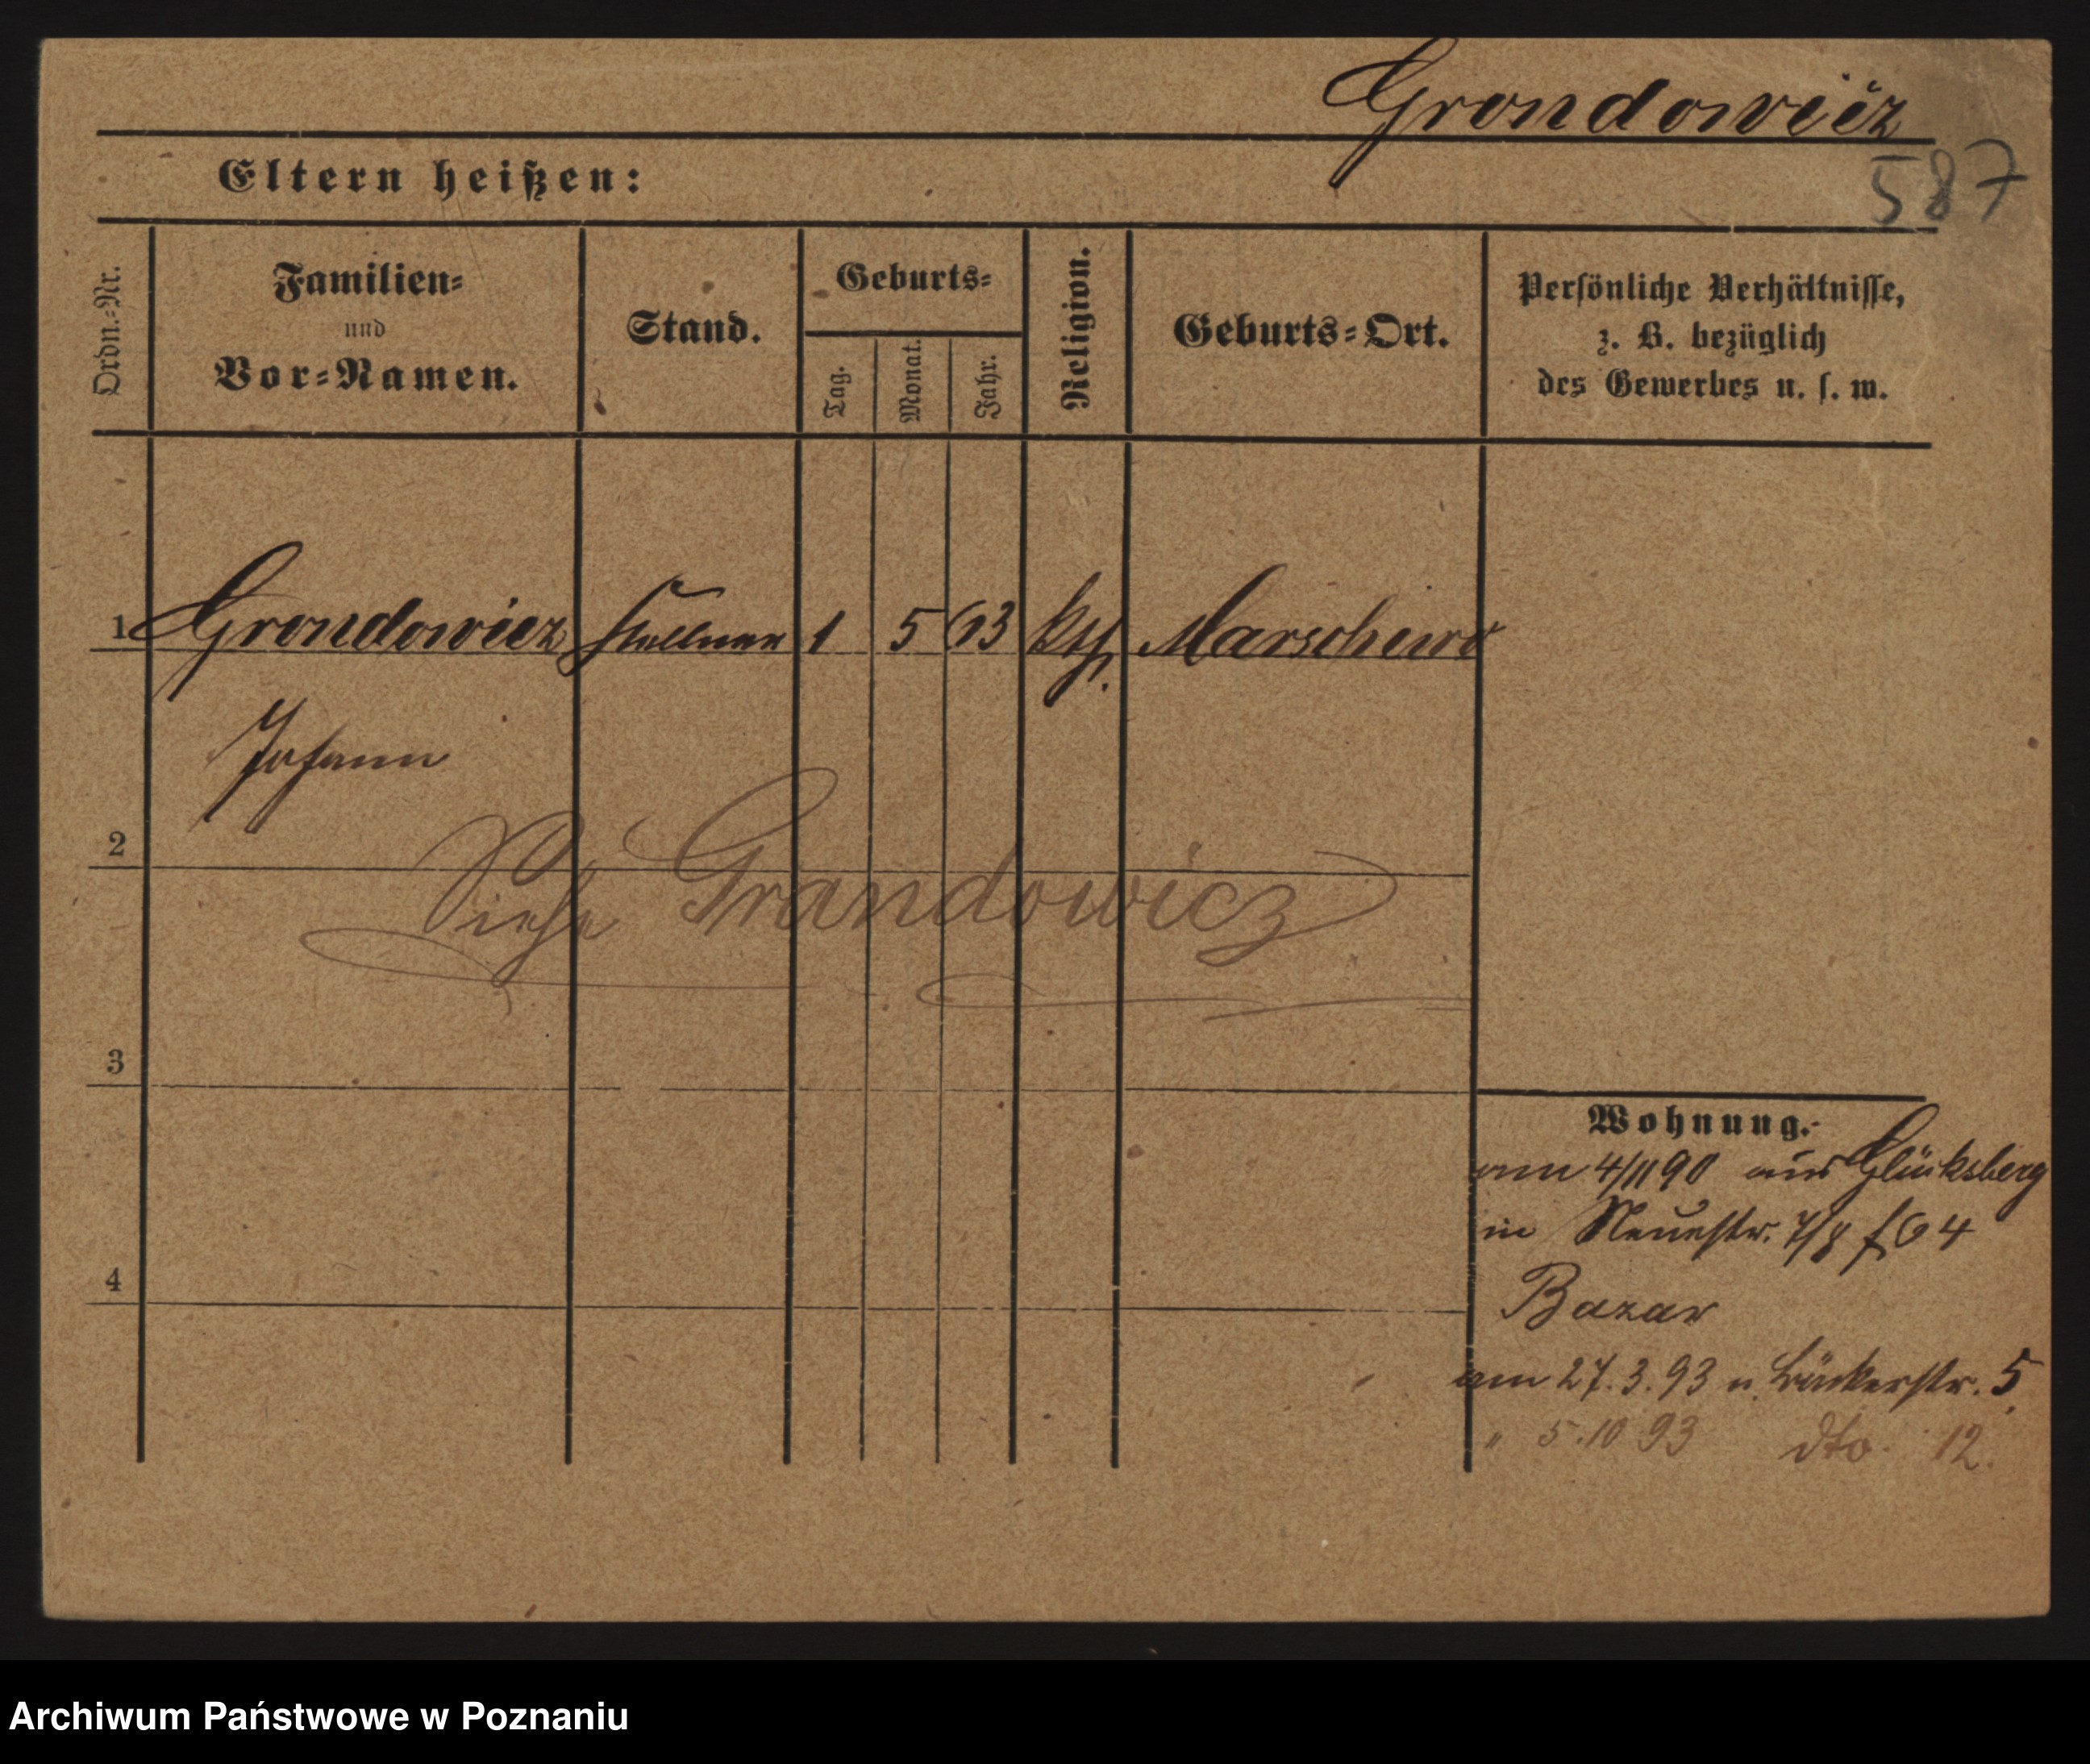 Grondowicz
587
Eltern heißen:
Ordn.-Nr.
Familien-
und
Vor-Namen.
Stand.
Geburts-
Tag.
Monat.
Jahr.
Religion.
Geburts-Ort.
Persönliche Verhältnisse,
z. B. bezüglich
des Gewerbes u. s. w.
1 Grondowicz 1 5 63 kth. Marschewo
Johann
2
Siehe Grandowicz
3
Wohnung.
am 4/11 90 aus Glücksberg
in Neuestr. 7/8 f 64
4
Bazar
am 27.3.93 n. Bäckerstr. 5
" 5.10 93 dto. 12.
Archiwum Państwowe w Poznaniu